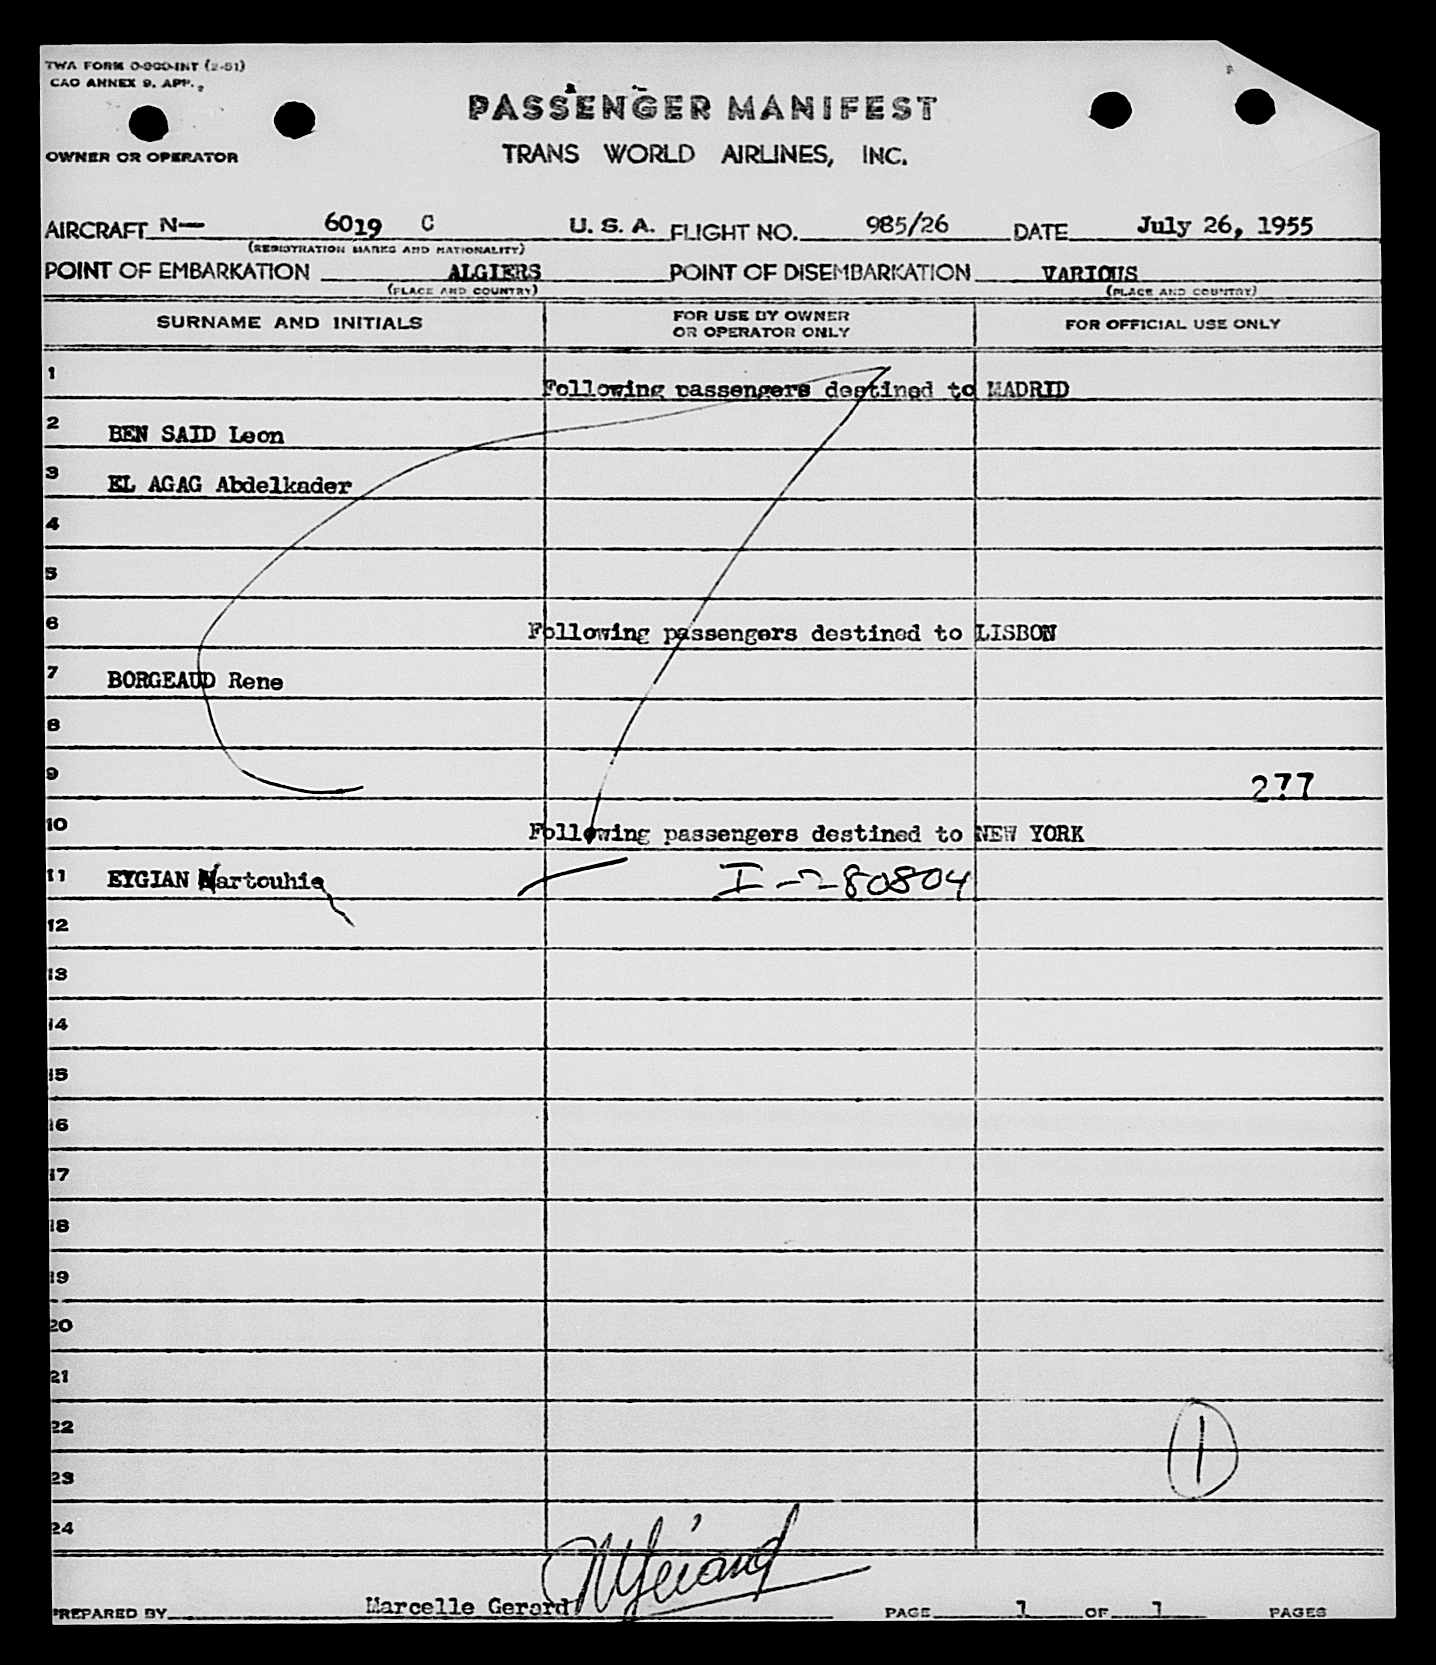 TWA FORM O-900-INT (2-51)
CAO ANNEX 9. APP. 2
PASSENGER MANIFEST
OWNER OR OPERATOR
TRANS WORLD AIRLINES, INC.
AIRCRAFT N— 6019 C U. S. A. FLIGHT NO. 985/26 DATE July 26, 1955
(REGISTRATION MARKS AND NATIONALITY)
POINT OF EMBARKATION ALGIERS POINT OF DISEMBARKATION VARIOUS
(PLACE AND COUNTRY) (PLACE AND COUNTRY)
SURNAME AND INITIALS FOR USE BY OWNER OR OPERATOR ONLY FOR OFFICIAL USE ONLY
1 Following passengers destined to MADRID
2 BEN SAID Leon
3 EL AGAG Abdelkader
4
5
6 Following passengers destined to LISBON
7 BORGEAUD Rene
8
9 277
10 Following passengers destined to NEW YORK
11 EYGIAN Nartouhie I-280804
12
13
14
15
16
17
18
19
20
21
22 1
23
24
PREPARED BY Marcelle Gerard MGérard PAGE 1 OF 1 PAGES